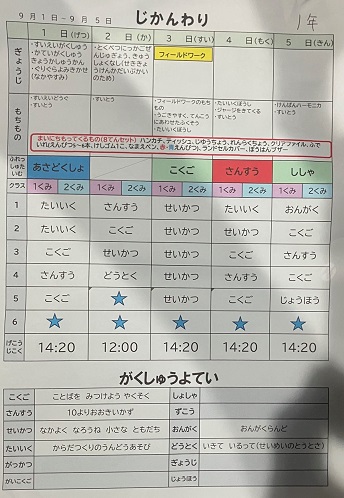 9月1日-9月5日
じかんわり
1年
1 日(げつ) 2 日(か) 3 日(すい) 4 日(もく) 5 日(きん)
ぎょうじ
・すいえいがくしゅう
・かていがくしゅう
きょうかしゅうかん
・ぐりぐらよみきかせ
(なかやすみ)
・とくべつにっかこぜ
んじゅぎょう、きゅう
しょくなし
のため)
フィールドワーク
もちもの
・すいえいどうぐ
・すいとう
・すいとう
・フィールドワークのもち
もの
・うごきやすく、てんこう
にあわせたふくそう
・たいいくぼうし
・たいいくぼうし
・ジャージをきてくる
・すいとう
・けんばんハーモニカ
・すいとう
まいにちもってくるもの(8てんセット) ハンカチ、ティッシュ、じゆうちょう、れんらくちょう、クリアファイル、ふで
いれ(えんぴつ5~6本、けしゴム1こ、なまえペン、赤・青えんぴつ)、ランドセルカバー、ぼうはんブザー
ふれっしゅたいむ あさどくしょ こくご さんすう ししゃ
クラス 1くみ 2くみ 1くみ 2くみ 1くみ 2くみ 1くみ 2くみ 1くみ 2くみ
1 たいいく さんすう せいかつ たいいく おんがく
2 たいいく こくご せいかつ せいかつ こくご
3 こくご せいかつ せいかつ こくご さんすう
4 さんすう どうとく せいかつ さんすう こくご
5 こくご ★ せいかつ こくご じょうほう
6 ★ ★ ★ ★ ★
げこうじこく 14:20 12:00 14:20 14:20 14:20
がくしゅうよてい
こくご ことばを みつけよう やくそく しょしゃ
さんすう 10よりおおきいかず ずこう
せいかつ なかよく なろうね 小さな ともだち おんがく おんがくらんど
たいいく からだつくりのうんどうあそび どうとく いきて いるって(せいめいのとうとさ)
がっかつ ぎょうじ
がいこくご じょうほう